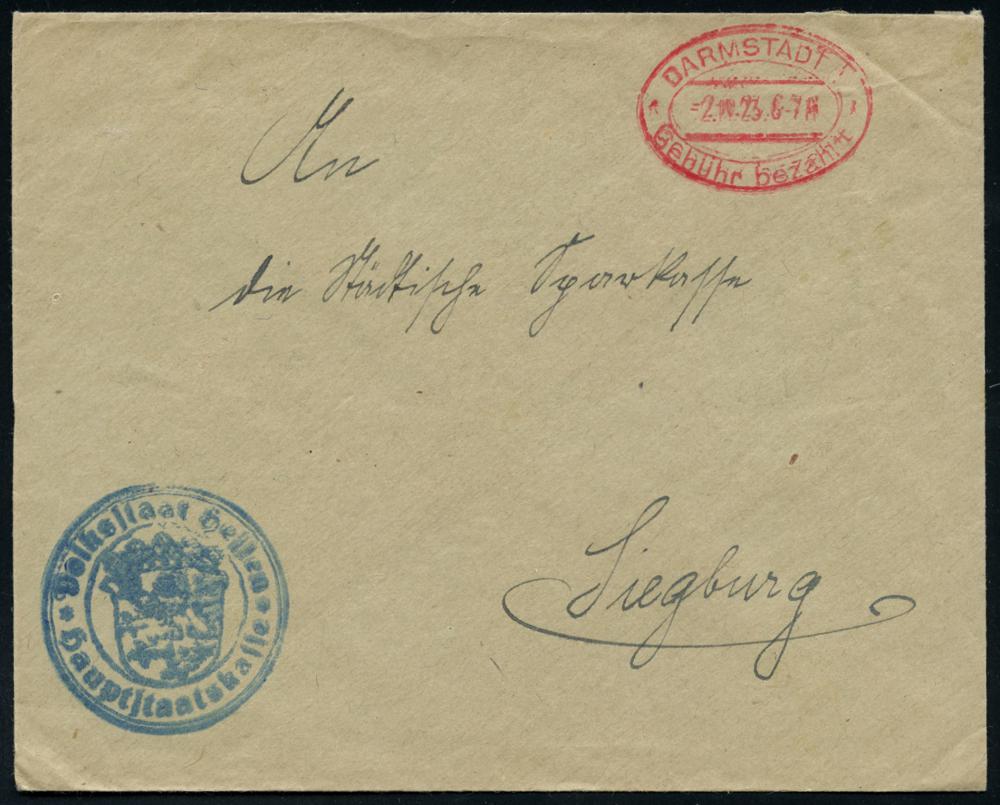 DARMSTADT 1
-2.IV.23.6-7N
Gebühr bezahlt
An
die Städtische Sparkasse
Siegburg
Volksstaat Hessen
Hauptstaatskasse